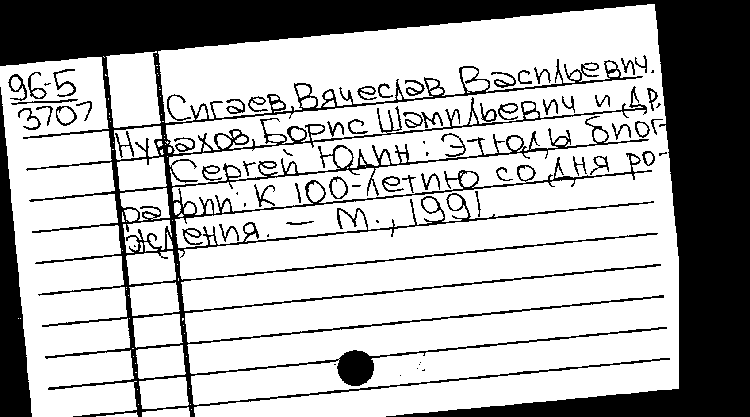 96-5
3707
Сигаев, Вячеслав Васильевич.
Нувахов, Борис Шамильевич и др.
Сергей Юдин: Этюды биог-
рафии: К 100-летию со дня ро-
ждения. — М., 1991.